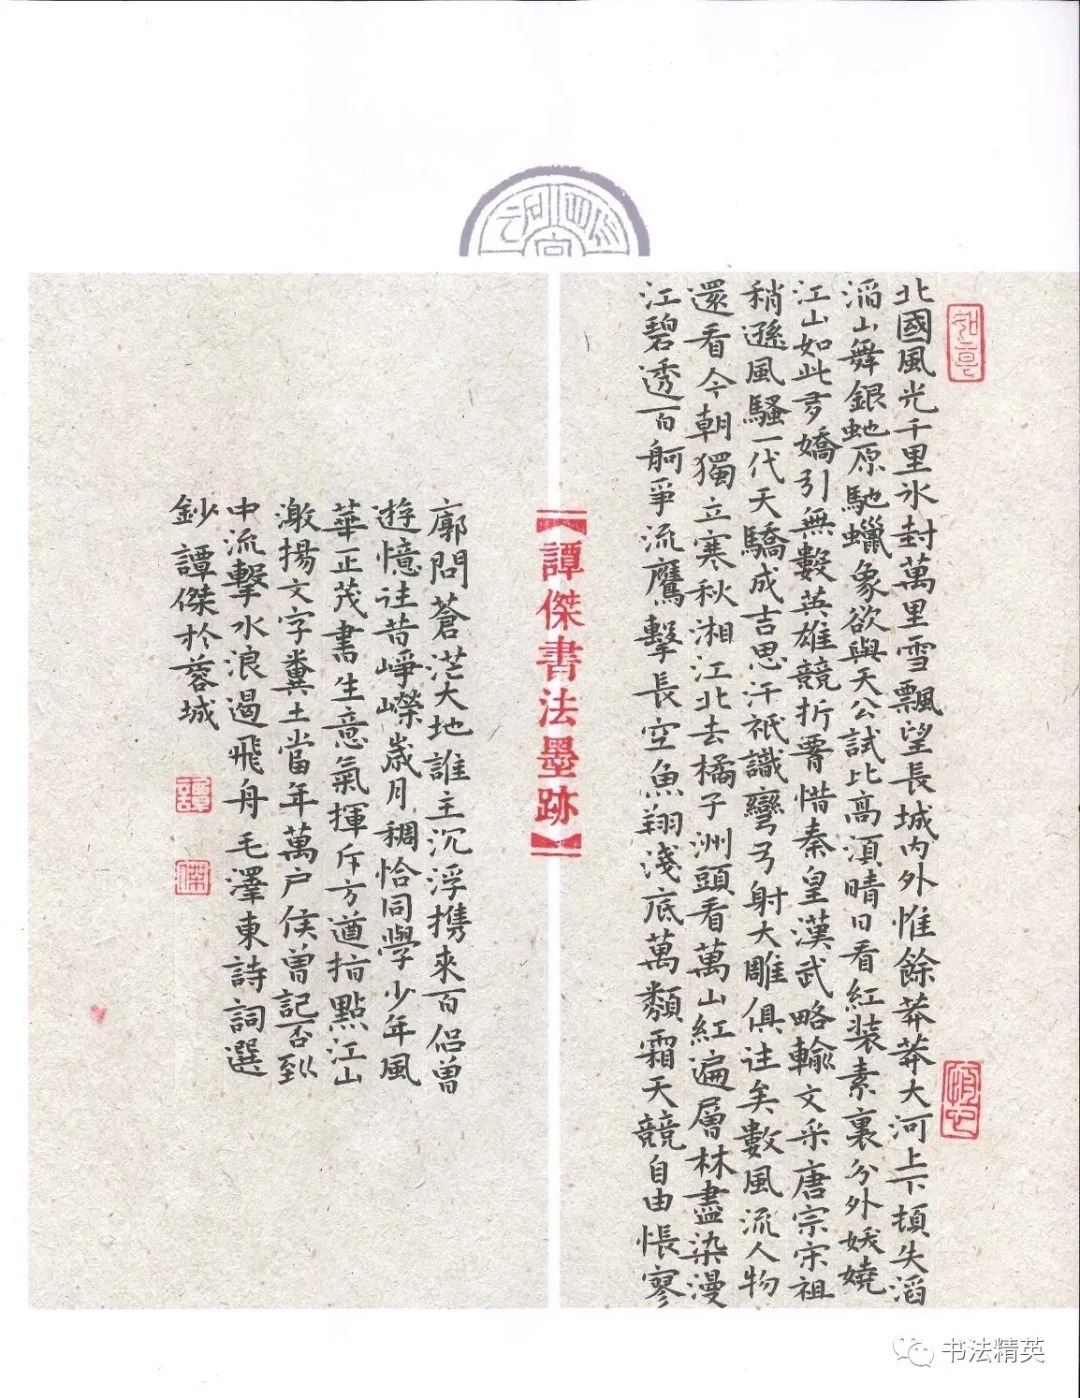 北國風光千里氷封萬里雪飄望長城内外惟餘莽莽大河上下頓失滔
滔山舞銀虵原馳蠟象欲與天公試比高湏晴日看紅装素裹分外妖嬈
江山如此多嬌引無數英雄競折腰惜秦皇漢武略輸文采唐宗宋祖
稍遜風騷一代天驕成吉思汗祇識彎弓射大雕俱往矣數風流人物
還看今朝獨立寒秋湘江北去橘子洲頭看萬山紅遍層林盡染漫
江碧透百舸爭流鷹擊長空魚翔淺底萬類霜天競自由悵寥
【譚傑書法墨跡】
廓問蒼茫大地誰主沉浮携來百侣曾
遊憶往昔崢嶸歲月稠恰同學少年風
華正茂書生意氣揮斥方遒指點江山
激揚文字糞土當年萬户侯曾記否到
中流擊水浪遏飛舟毛澤東詩詞選
鈔 譚傑於蓉城
譚
傑
书法精英